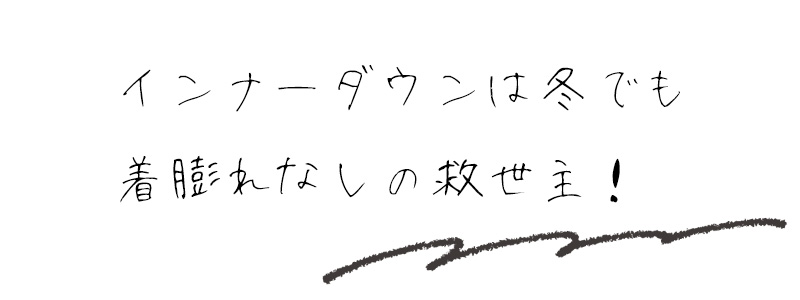 インナーダウンは冬でも
着膨れなしの救世主！